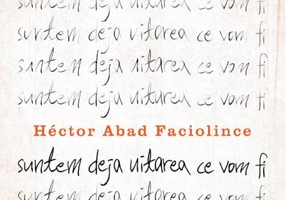 suntem deja uitarea ce vom fi
suntem deja uitarea ce vom fi
suntem deja uitarea ce vom fi
suntem deja uitarea ce vom fi
Héctor Abad Faciolince
suntem deja uitarea ce vom fi
suntem deja uitarea ce vom fi